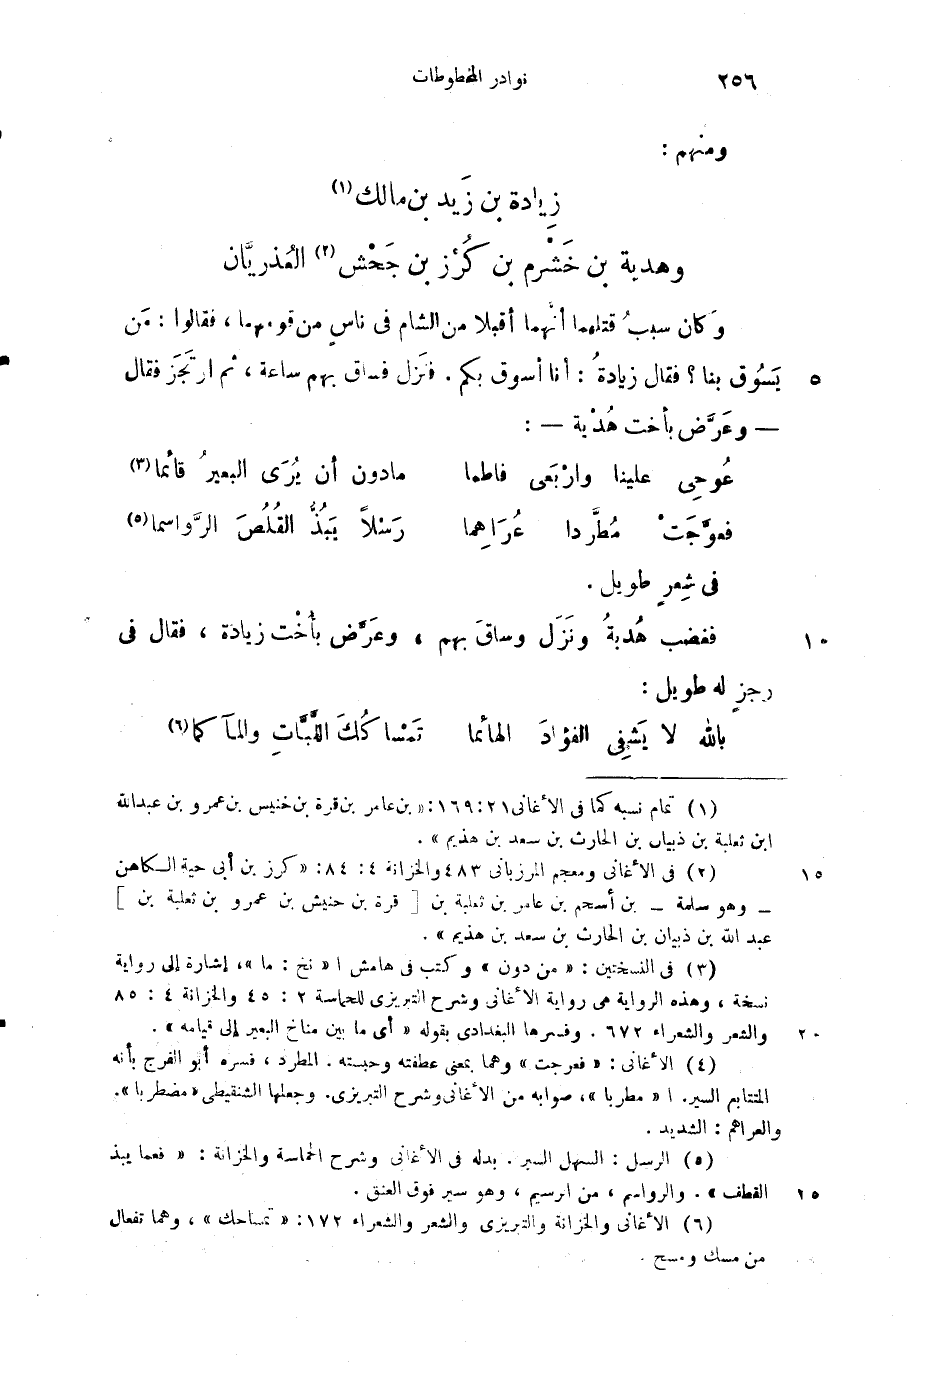 ٢٥٦ نوادر المخطوطات
ومنهم :
زِيادة بن زَيد بن مالك(١)
وهدبة بن خَشْرم بن كُرْز بن جَحْش(٢) العُذريَّان
وَكان سببُ قتلهما أنَّهما أقبلا من الشام فى ناسٍ من قومهما ، فقالوا : مَن
٥ يَسُوق بنا ؟ فقال زيادةُ : أنا أسوق بكم . فنزل فساق بهم ساعة ، ثم ارتَجَز فقال
— وعَرَّض بأخت هُدْبة — :
عُوجِى علينا وارْبَعى فاطما مادون أن يُرَى البعيرُ قائما(٣)
فعوَّجَتْ مُطَّردا عُرَاهِما رَسْلاً يَبُذُّ القُلُصَ الرَّواسما(٥)
فى شِعرٍ طويل .
١٠ فغضب هُدبةُ ونَزَل وساقَ بهم ، وعَرَّض بأُخْت زيادة ، فقال فى
رجزٍ له طويل :
بالله لا يَشفِى الفؤادَ الهائما تَمْساكُكَ اللَّبَّاتِ والمآكما(٦)
(١) تمام نسبه كما فى الأغانى ٢١ : ١٦٩ : « بن عامر بن قرة بن خنيس بن عمرو بن عبدالله
ابن ثعلبة بن ذبيان بن الحارث بن سعد بن هذيم » .
١٥ (٢) فى الأغانى ومعجم المرزبانى ٤٨٣ والخزانة ٤ : ٨٤ : « كرز بن أبى حية الكاهن
_ وهو سلمة _ بن أسحم بن عامر بن ثعلبة بن [ قرة بن حنيش بن عمرو بن ثعلبة بن ]
عبد الله بن ذبيان بن الحارث بن سعد بن هذيم » .
(٣) فى النسختين : « من دون » وكتب فى هامش ا « نخ : ما » ، إشارة إلى رواية
نسخة ، وهذه الرواية هى رواية الأغانى وشرح التبريزى للحماسة ٢ : ٤٥ والخزانة ٤ : ٨٥
٢٠ والشعر والشعراء ٦٧٢ . وفسرها البغدادى بقوله « أى ما بين مناخ البعير إلى قيامه » .
(٤) الأغانى : « فعرجت » وهما بمعنى عطفته وحبسته . المطرد ، فسره أبو الفرج بأنه
المتتابع السير . ا « مطربا » ، صوابه من الأغانى وشرح التبريزى . وجعلها الشنقيطى « مضطربا » .
والعراهم : الشديد .
(٥) الرسل : السهل السير . بدله فى الأغانى وشرح الحماسة والخزانة : « فعما يبذ
٢٥ القطف » . والرواسم ، من الرسيم ، وهو سير فوق العنق .
(٦) الأغانى والخزانة والتبريزى والشعر والشعراء ١٧٢ : « تمساحك » ، وهما تفعال
من مسك ومسح .